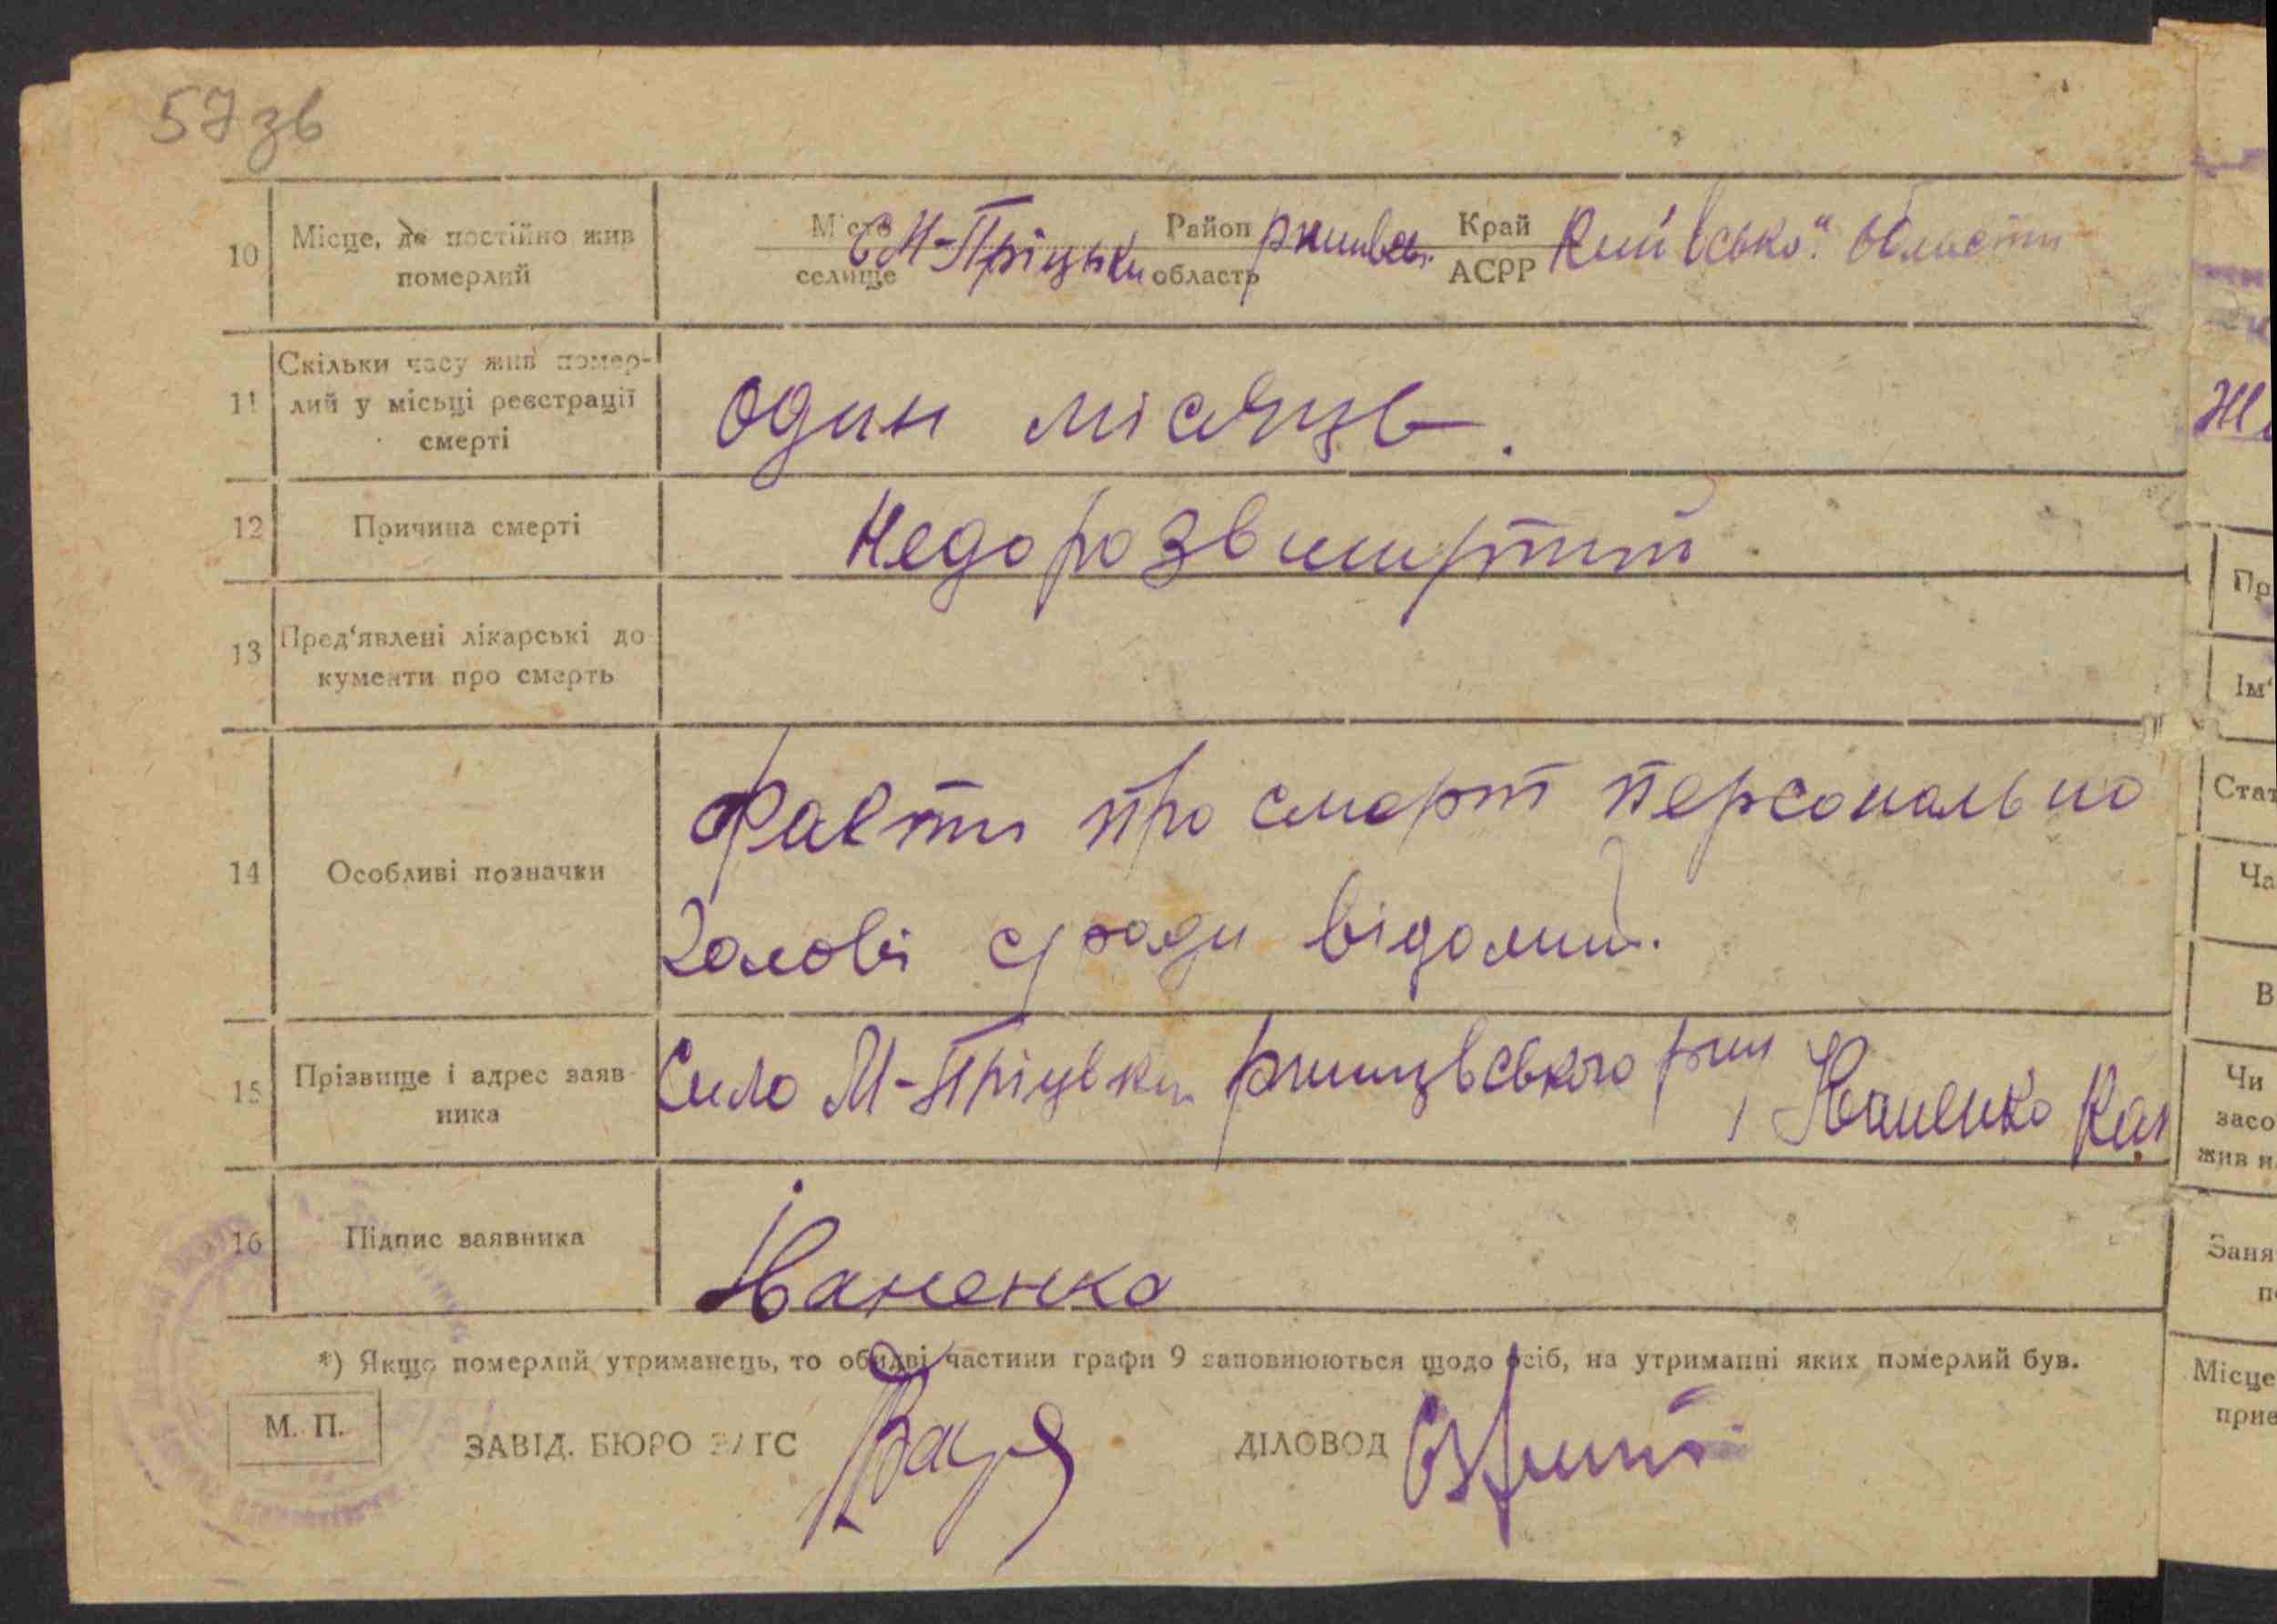 57зв
10 Місце, де постійно жив померлий
Місто селище с М-Пріцьки Район область Ржищівс. Край АСРР Київсько" області
11 Скільки часу жив помер-
лий у місьці реєстрації
смерті
один місяць.
12 Причина смерті
Недорозвин
13 Пред'явлені лікарські до
кументи про смерть
14 Особливі позначки
Факти про смерт персонально
голові с/ради відомий.
15 Прізвище і адрес заяв-
ника
Село М-Пріцьки Ржищівського р-ну, Іваненко
16 Підпис заявника
Іваненко
*) Якщо померлий утриманець, то обидві частини графи 9 заповнюються щодо осіб, на утриманні яких померлий був.
М. П. ЗАВІД. БЮРО ЗАГС ДІЛОВОД
Пр
Ім'
Стат
Ча
В
Чи
засо
жив н
Заня
п
Місце
прие